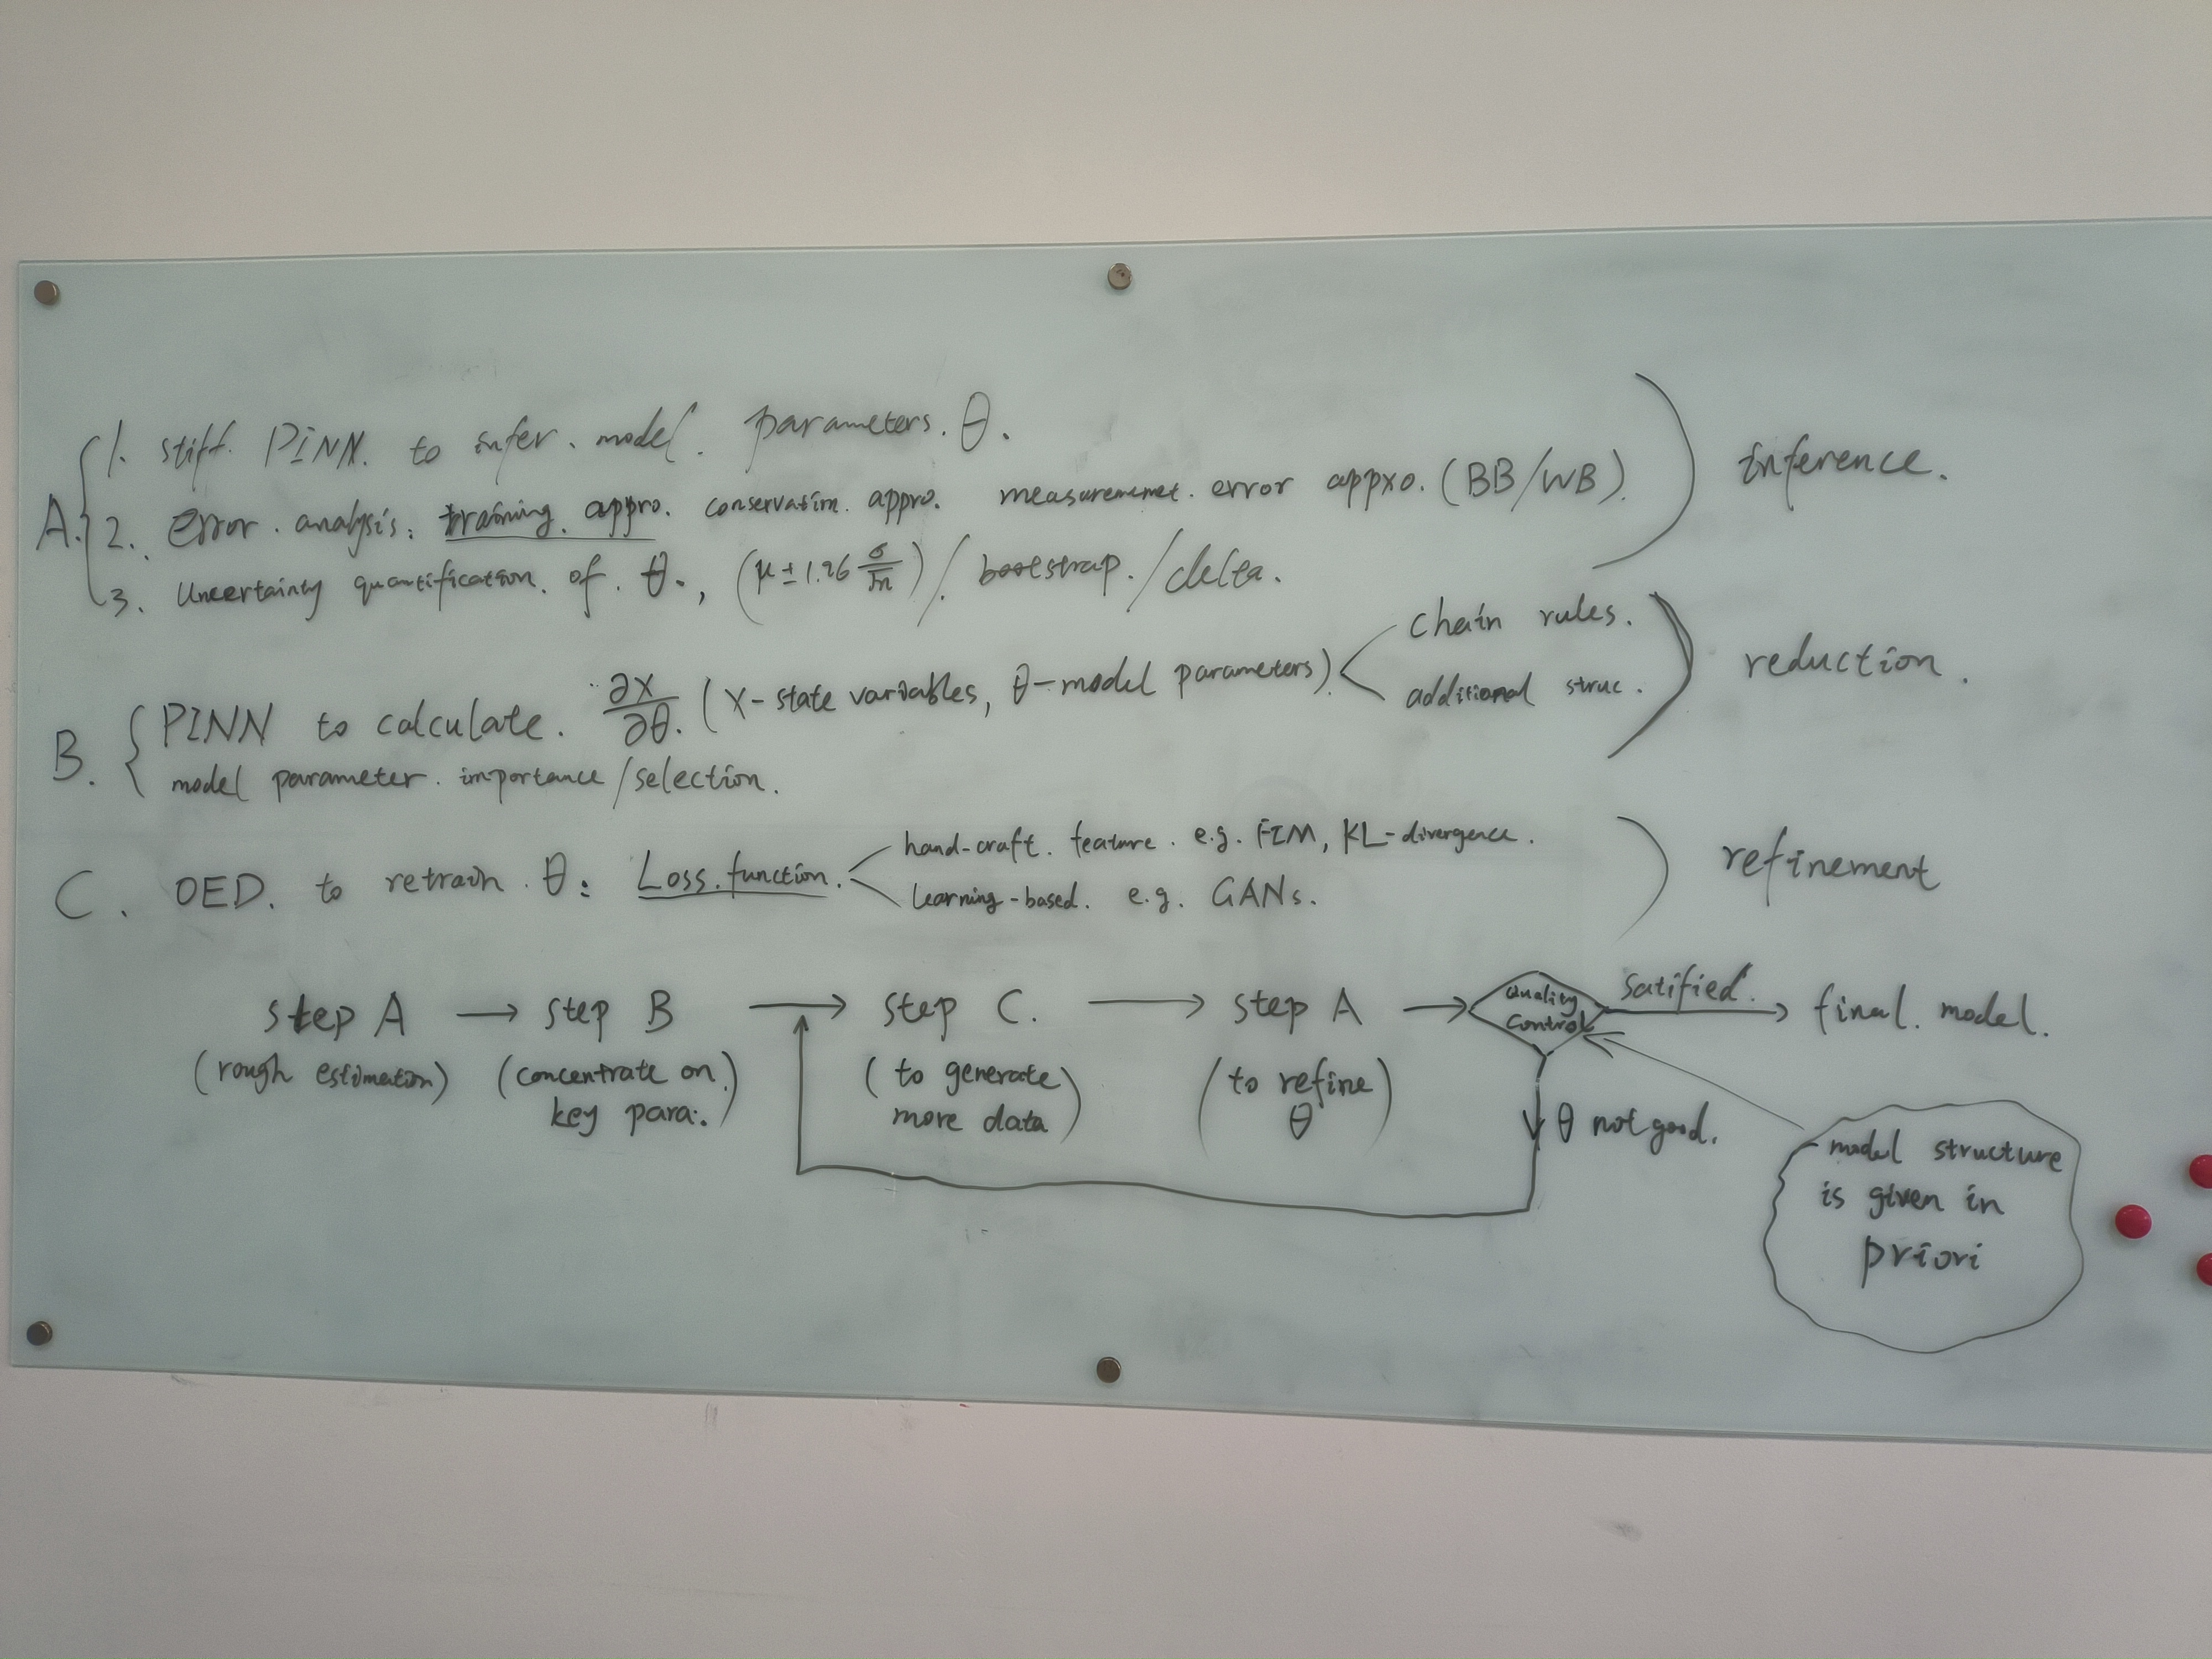 A.
1. stiff. PINN. to infer. model. parameters. θ.
2. Error. analysis: training. appro. conservation. appro. measurememet. error appxo. (BB/WB).
3. Uncertainty quantification. of. θ., (μ ± 1.96 σ/√n) / bootstrap. / delta.
inference.
B. PINN to calculate. ∂x/∂θ. (x-state variables, θ-model parameters)
chain rules.
additional struc.
model parameter. importance/selection.
reduction.
C. OED. to retrain. θ: Loss. function.
hand-craft. feature. e.g. FIM, KL-divergence.
learning-based. e.g. GANs.
refinement
step A → step B → step C. → step A → Quality Control satified. → final. model.
(rough estimation) (concentrate on key para.) (to generate more data) (to refine θ)
θ not good.
model structure
is given in
priori